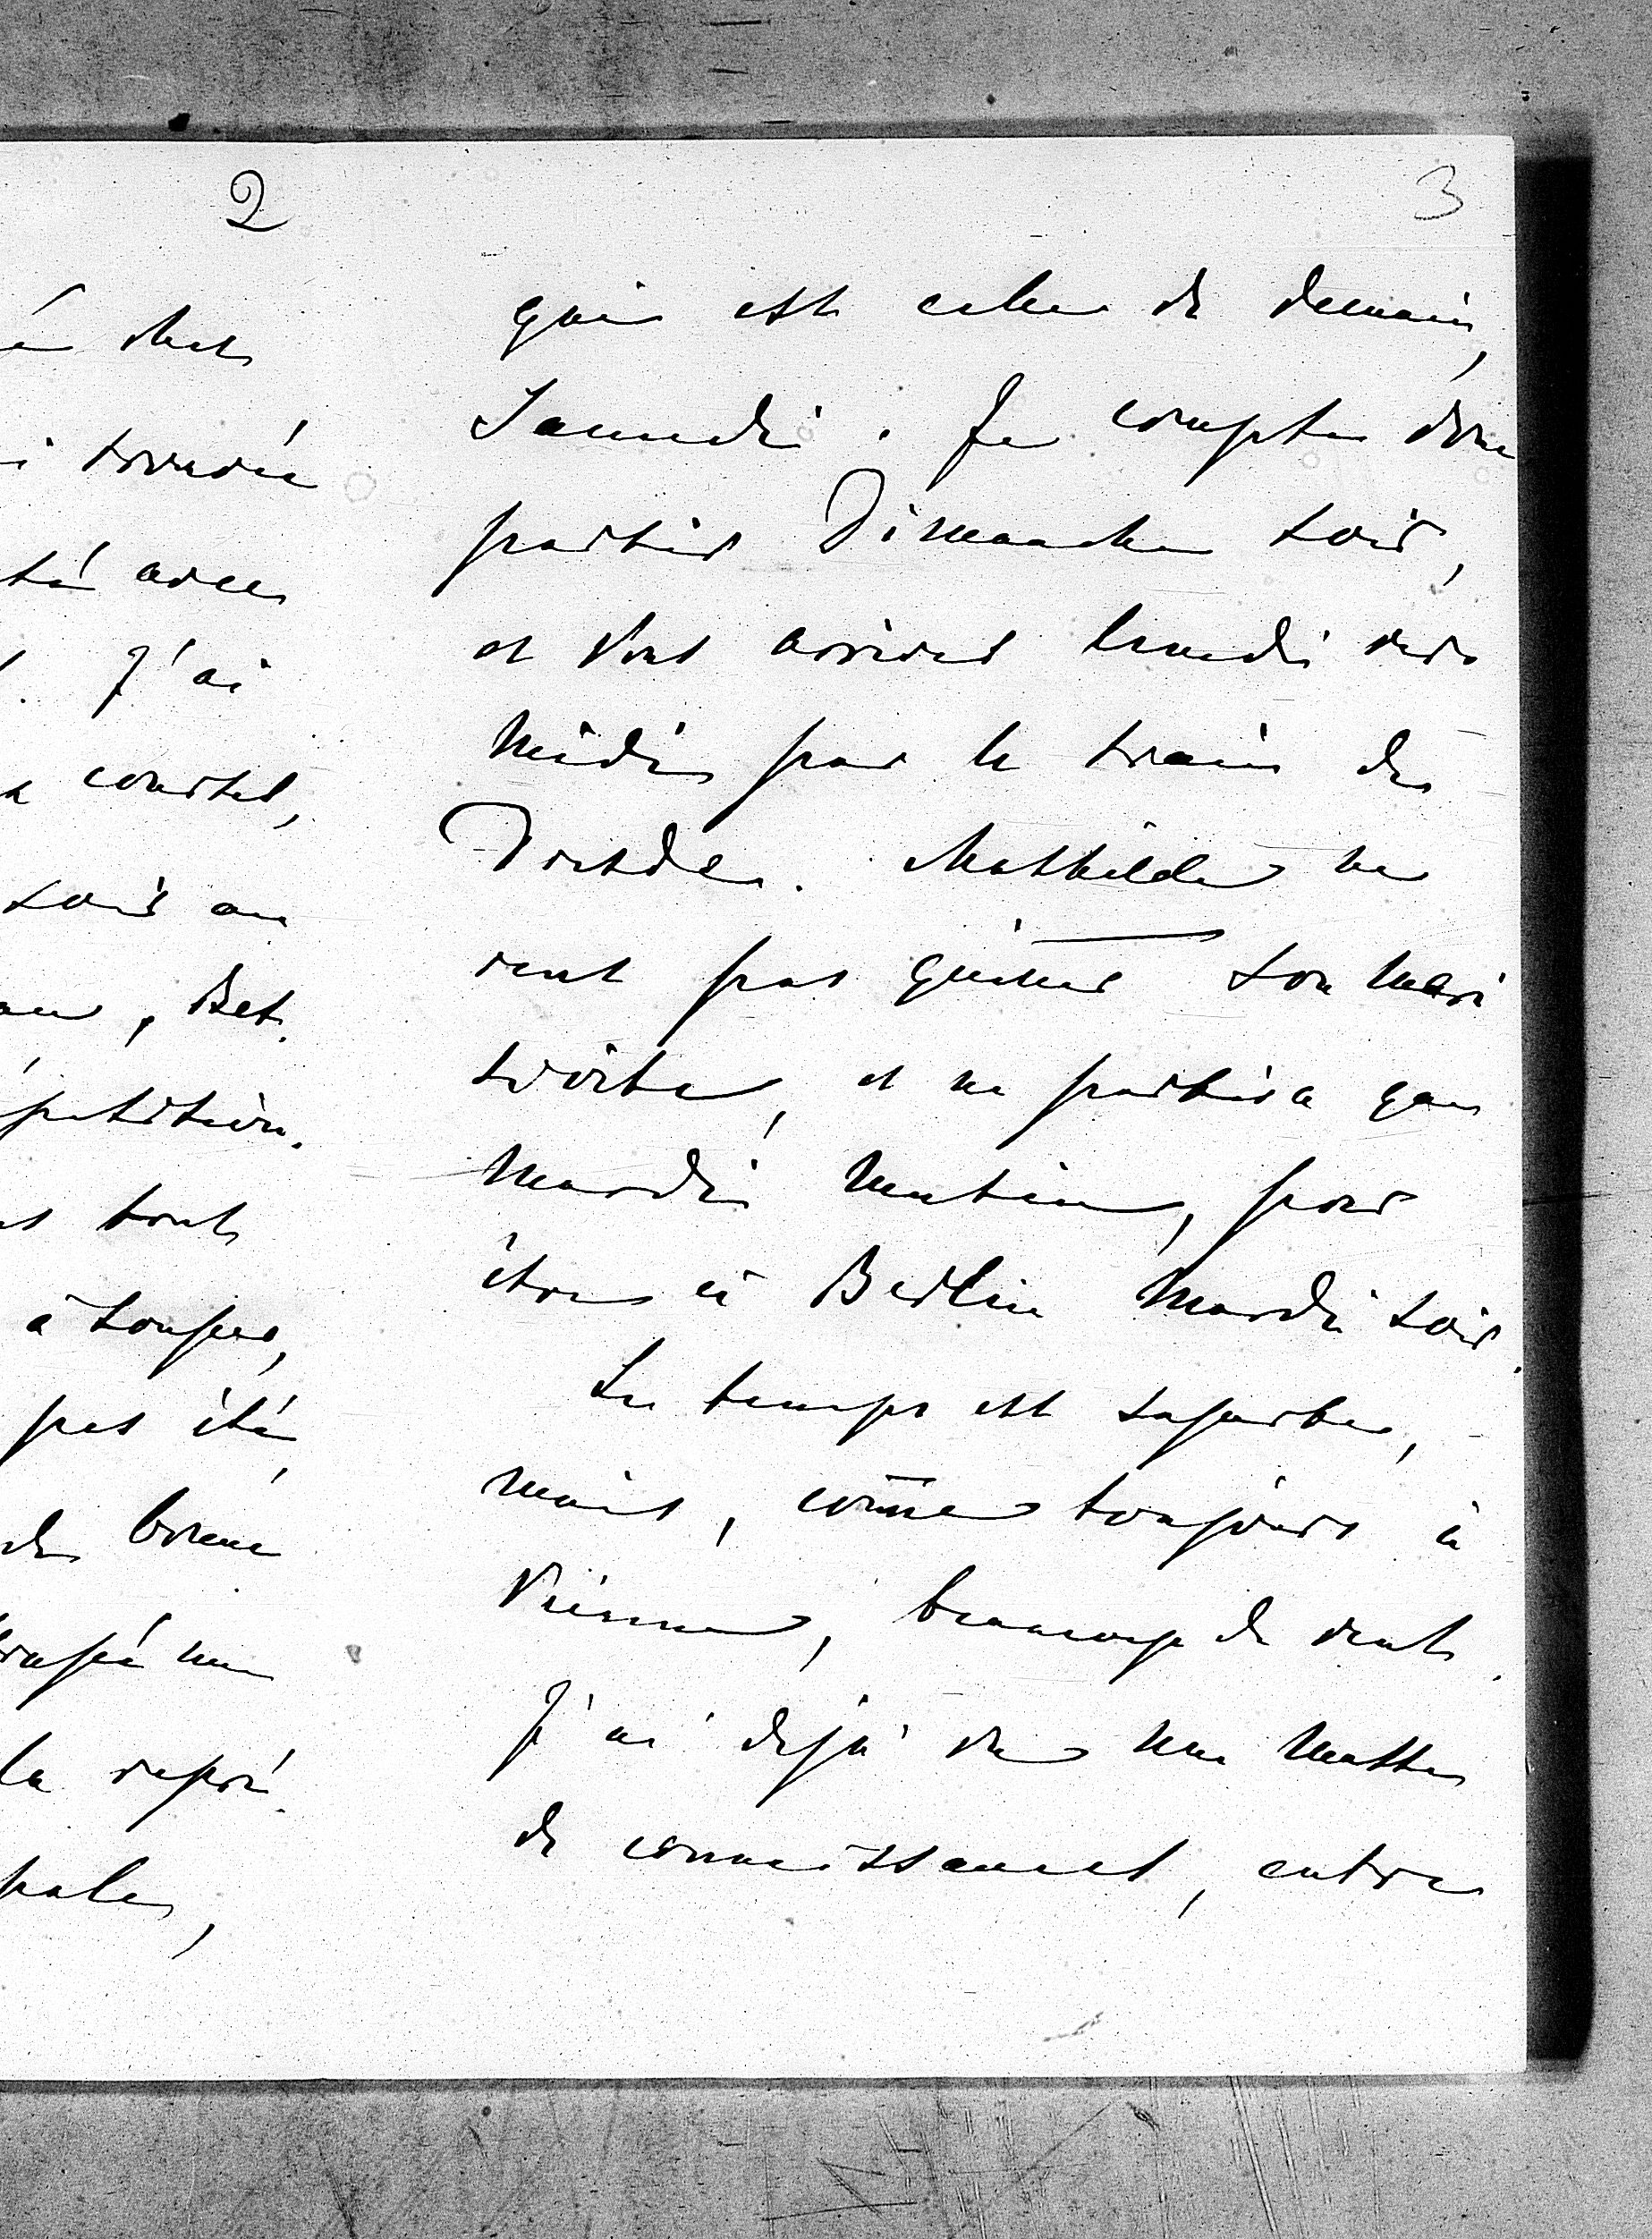 2
chez
trouvée
été avec
J'ai
courses,
soir au
, Bet.
pétition.
tout
à souper,
pas été,
de bonne
une
la repré.
pale,
3
qui est celle de demain,
Samedi. Je compte donc
partir Dimanche soir,
et vous arriver lundi vers
midi par le train de
Dresde. Mathilde ne
veut pas quitter son mari
si vite, et ne partira que
mardi matin, pour
être à Berlin mardi soir.
Le temps est superbe,
mais, com̄e toujours à
Vienne, beaucoup de vent.
J'ai déjà vu une masse
de connaissances, entre